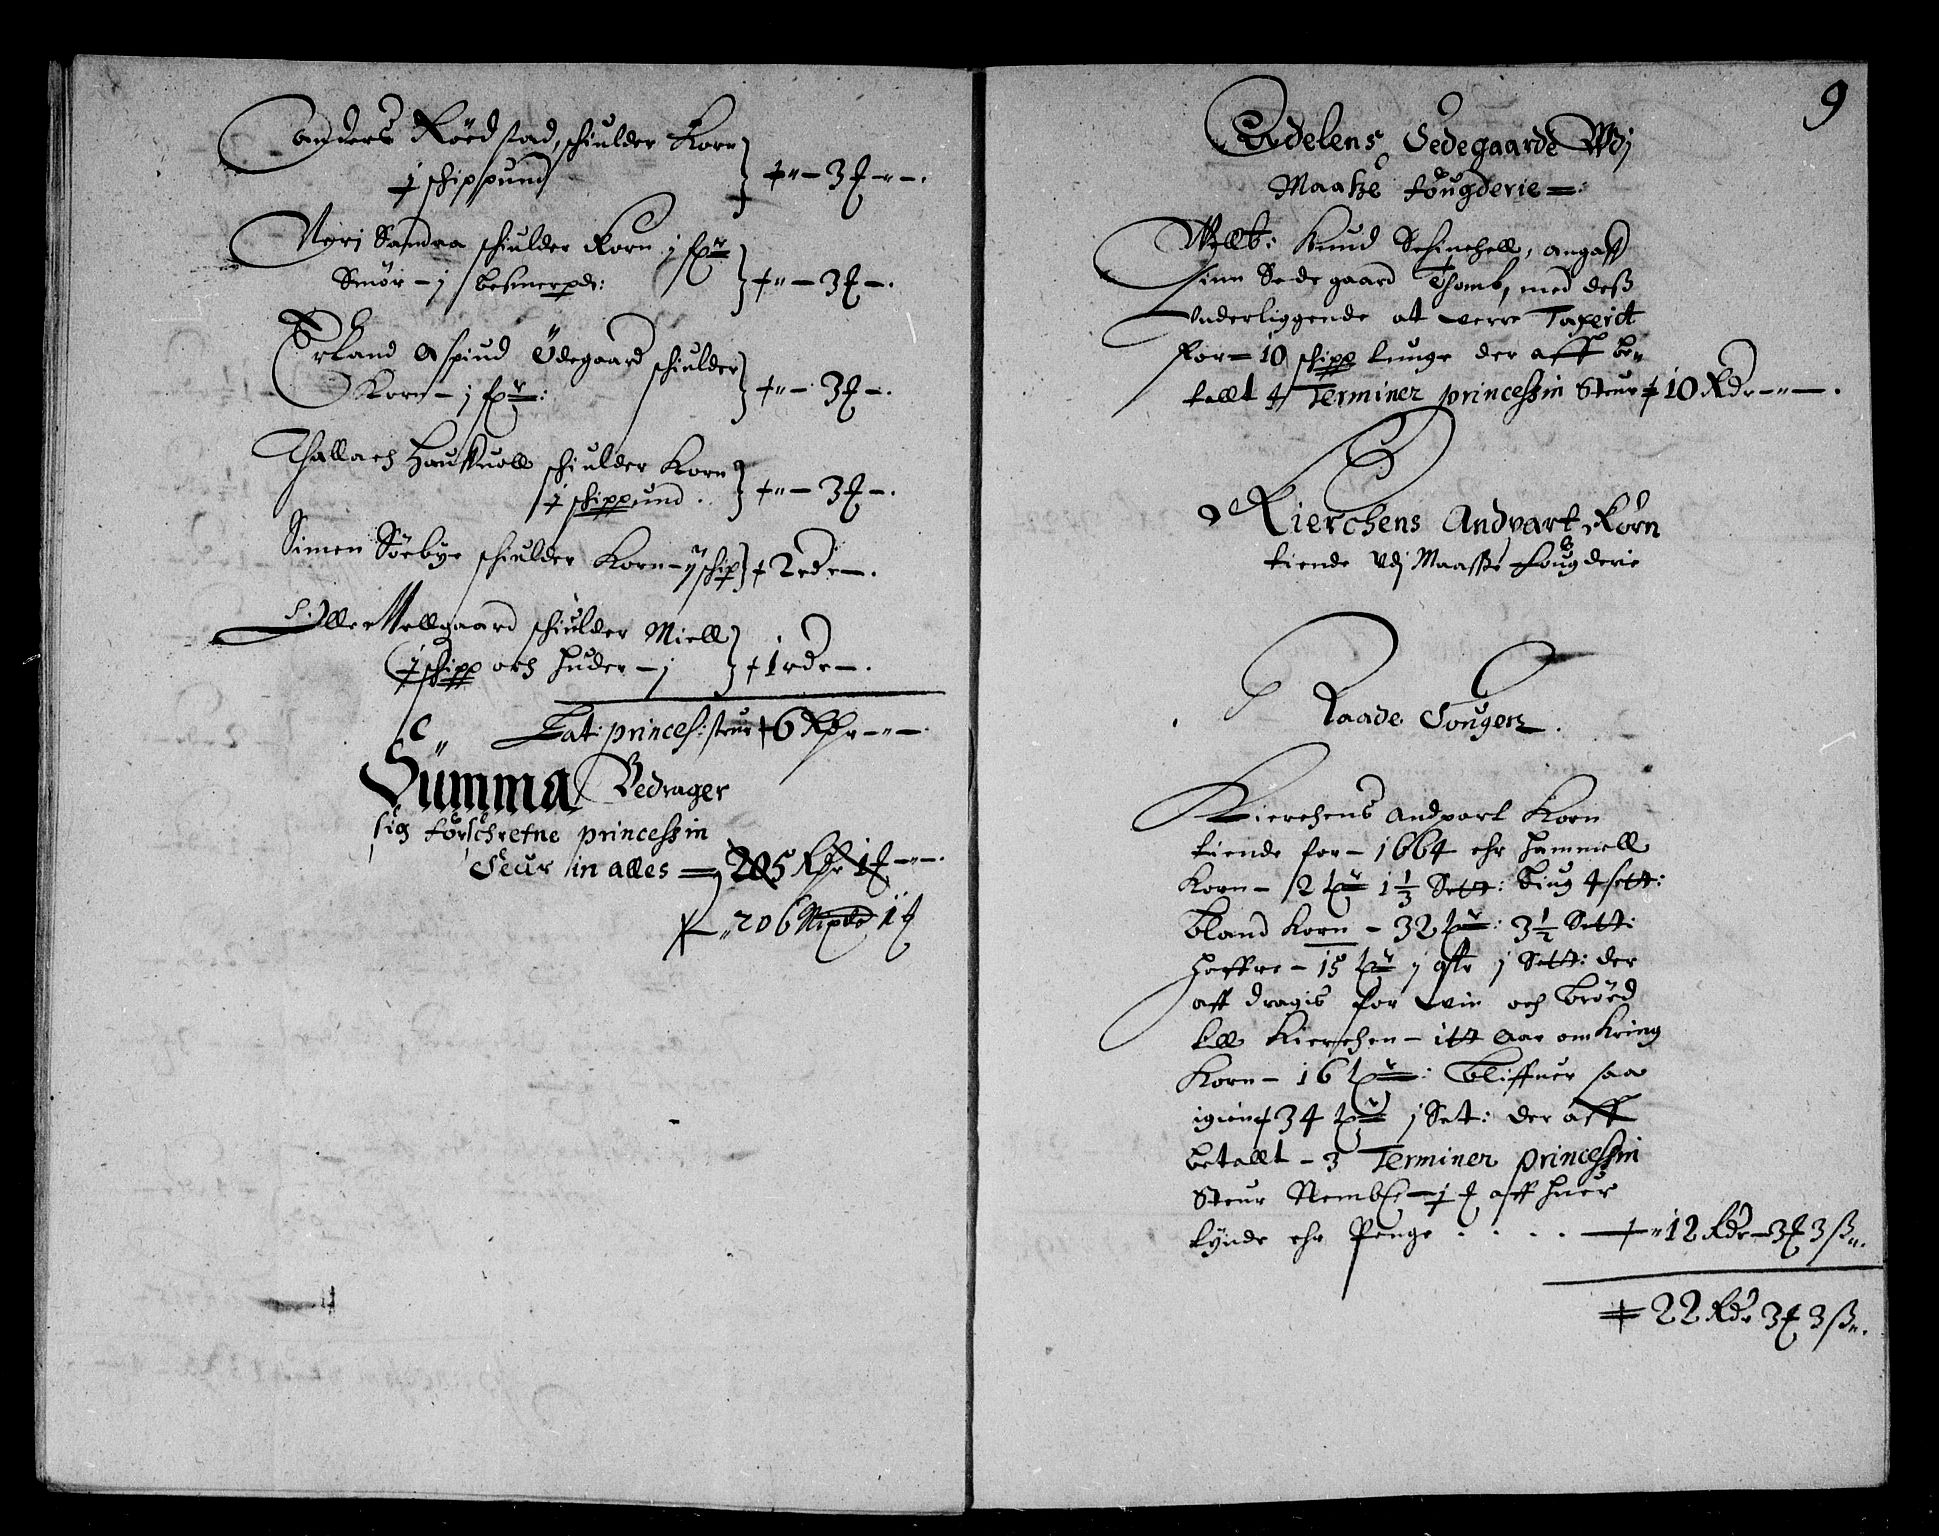 Anders Röedstad, schiulder Korn
j schippund + „ — 3 ℔ — „ — .
Siurj Sandaa schiulder Korn j
Smör — j besmerpd: + „ — 3 ℔ — .
Erland Aspiud Ödegaard schiulder
Korn — j + „ — 3 ℔ — .
Thallach schiulder Korn
j schippund . + „ — 3 ℔ — .
Simen Söebye schiulder Korn — ij schip + 2 rdr — .
Oller Mellgaard schiulder Miell
j schipp och Huder — j + 1 rdr — .
Lat: princes: steur + 6 Rdr — „ — .
Summa Bedrager
sig förschrefne princessin
Steur in alles — 205 Rdr 1 — „ — .
206 1
9
Adelens Sedegaarde Vdj
Maatze fougderie — :
Welb: Knud Schinchell, angaff
sinn Sædegaard Thomb, med deß
Vnderliggende at verre Taxerit
for — 10 schipp tunge der aff be„
tallt 4 Terminer princessin Steur + 10 Rdr — „ — .
Kierchens Andpart Korn
tiende Vdj Maasse Fougderie
Raade Sougen .
Kierchens Andpart Korn
tiende for — 1664 ehr Hammell
Korn — 2 1 1/3 Sett: Biug 4 sett:
Bland Korn — 32 : 3 1/2 Sett:
Haffre — 15 j j Sett: der
aff dragis for Win och Bröed
till Kierchen — itt Aar omkring
Korn — 16 : Bliffuer saa
igien + 34 j Set: der aff
betallt — 3 Terminer princessin
Steur Nembl — j aff Huer
tynde ehr Penge . . . . — „ 12 Rdr — 3 3 ß „ .
22 Rdr 3 3 ß „ .